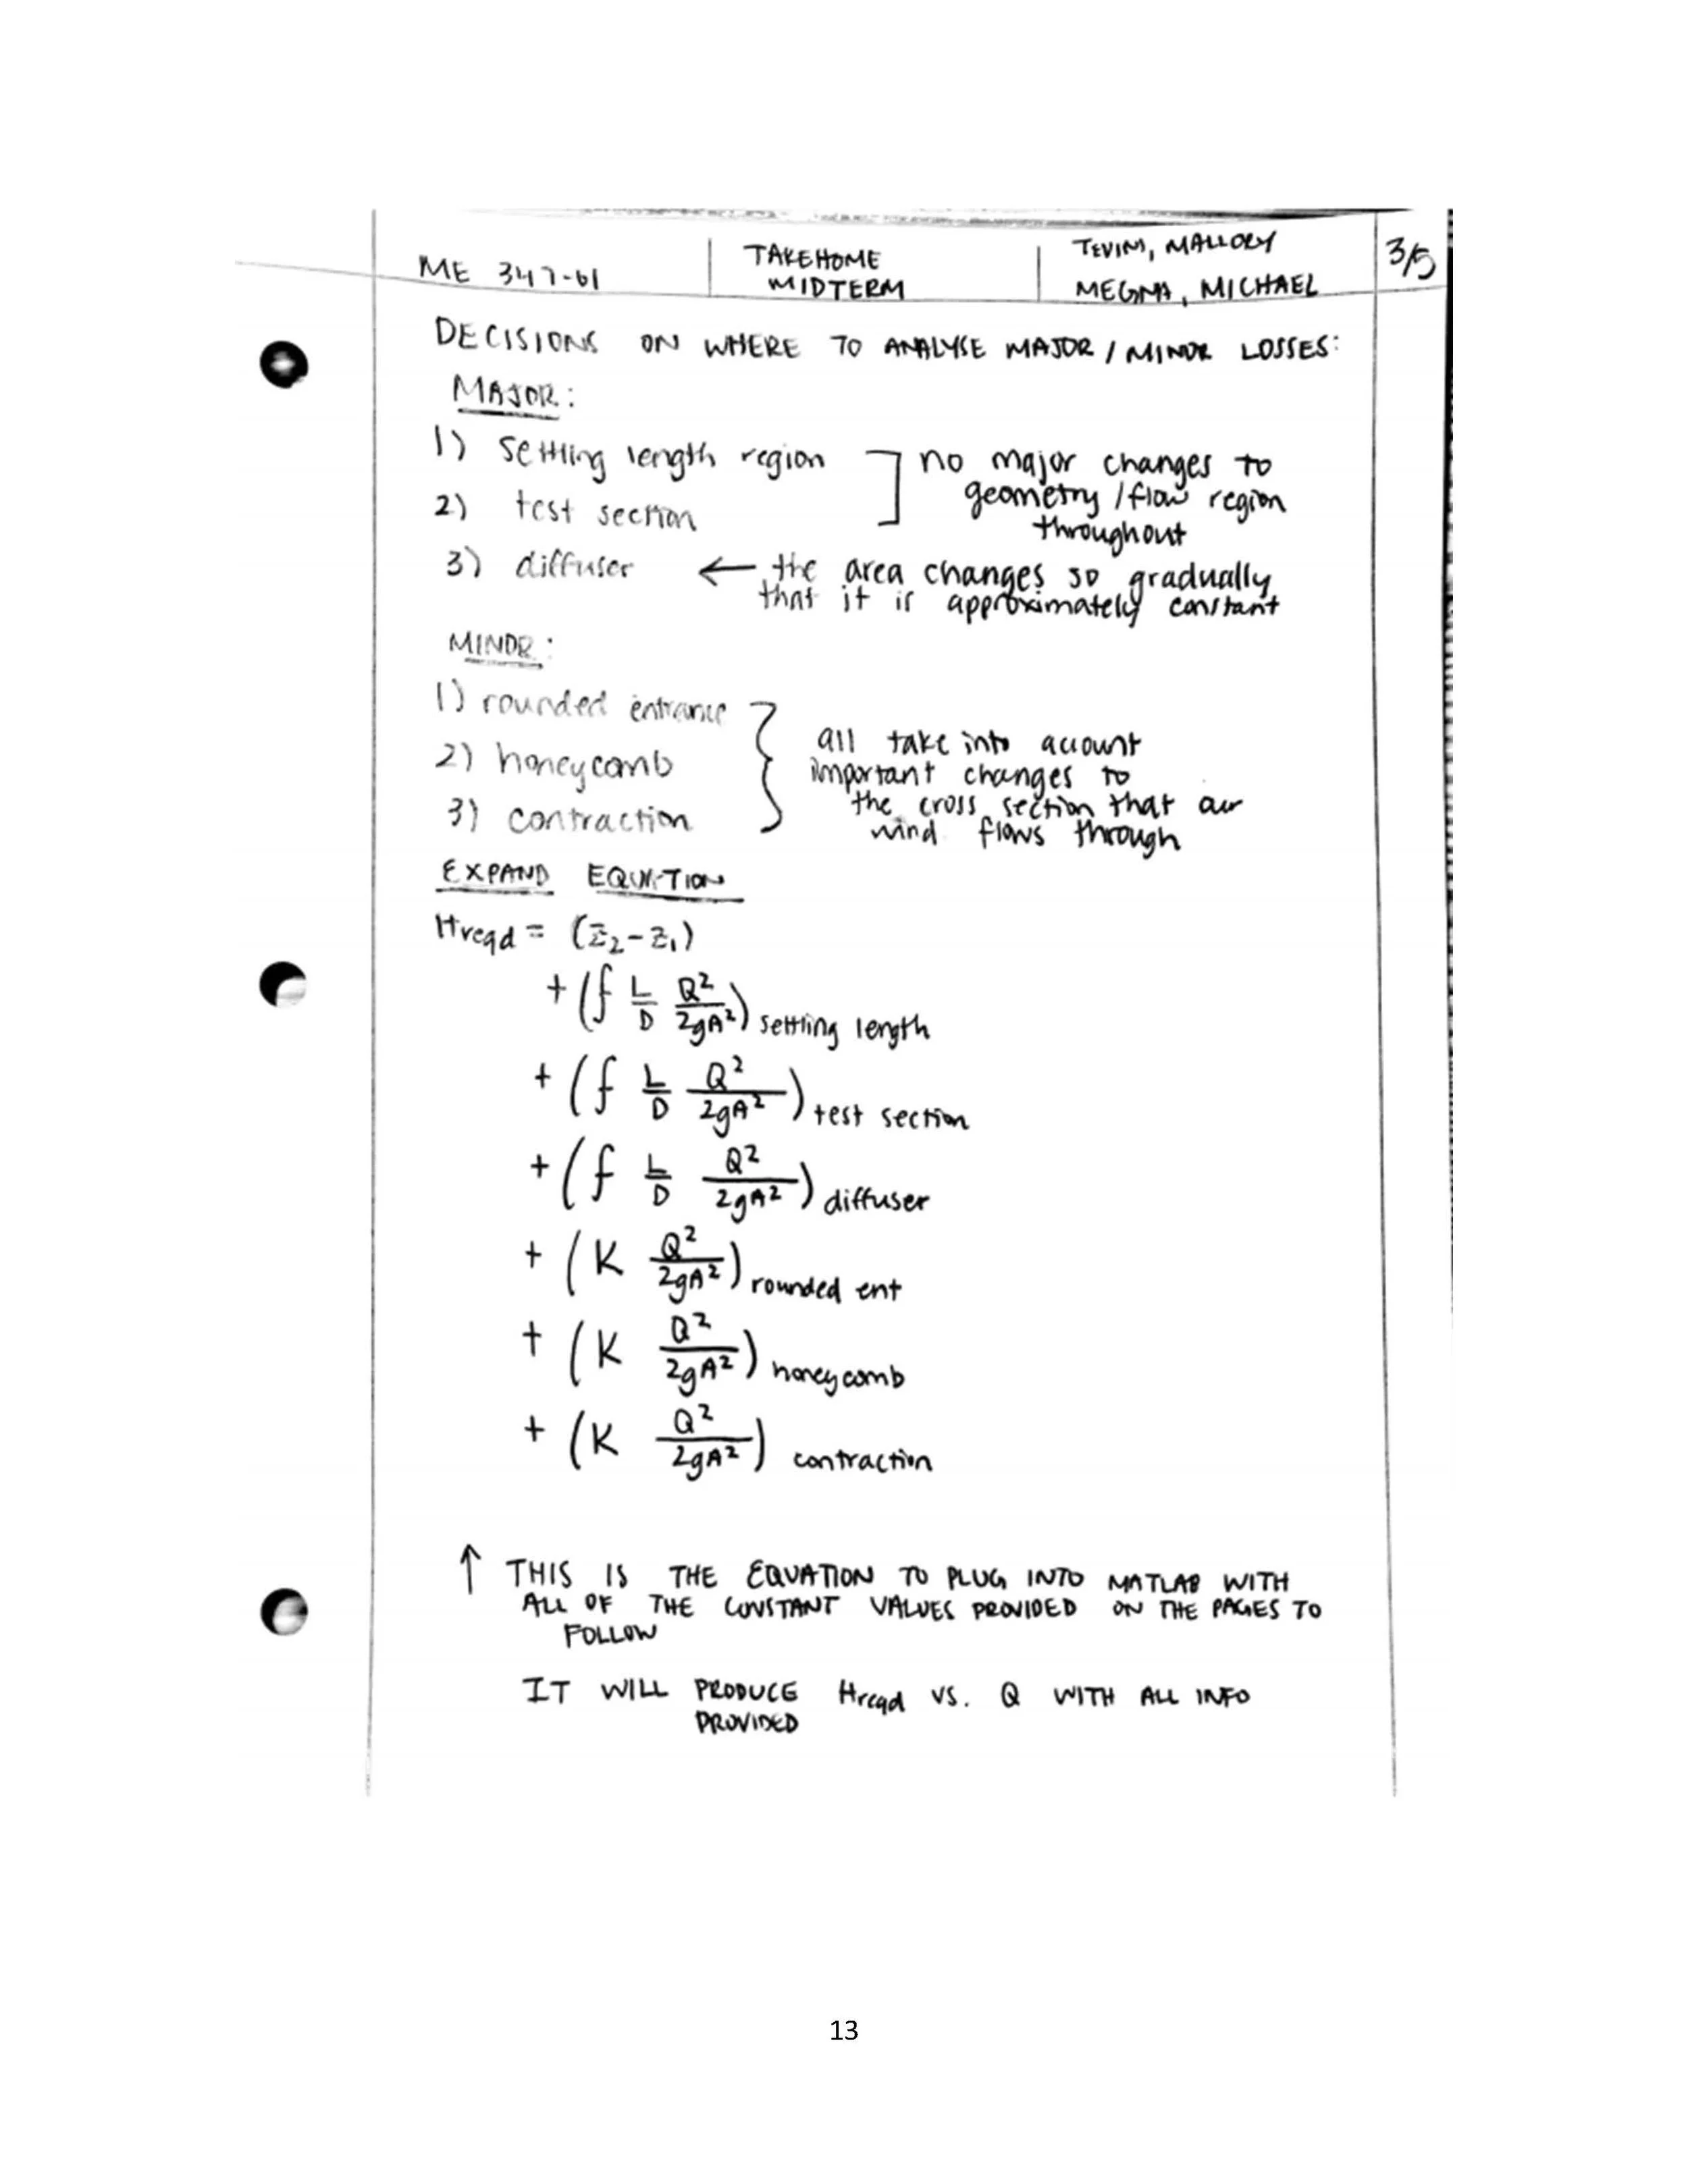 ME 347-01 | TAKEHOME MIDTERM | TEVIN, MALLORY MEGNA, MICHAEL | 3/5
DECISIONS ON WHERE TO ANALYSE MAJOR / MINOR LOSSES:
MAJOR:
1) settling length region ] no major changes to
2) test section geometry / flow region
throughout
3) diffuser ← the area changes so gradually
that it is approximately constant
MINOR:
1) rounded entrance
2) honeycomb } all take into account
important changes to
3) contraction the cross section that our
wind flows through
EXPAND EQUATION
Hreqd = (Z₂-Z₁)
+ (f L/D Q²/2gA²) settling length
+ (f L/D Q²/2gA²) test section
+ (f L/D Q²/2gA²) diffuser
+ (K Q²/2gA²) rounded ent
+ (K Q²/2gA²) honeycomb
+ (K Q²/2gA²) contraction
↑ THIS IS THE EQUATION TO PLUG INTO MATLAB WITH
ALL OF THE CONSTANT VALUES PROVIDED ON THE PAGES TO
FOLLOW
IT WILL PRODUCE Hreqd VS. Q WITH ALL INFO
PROVIDED
13